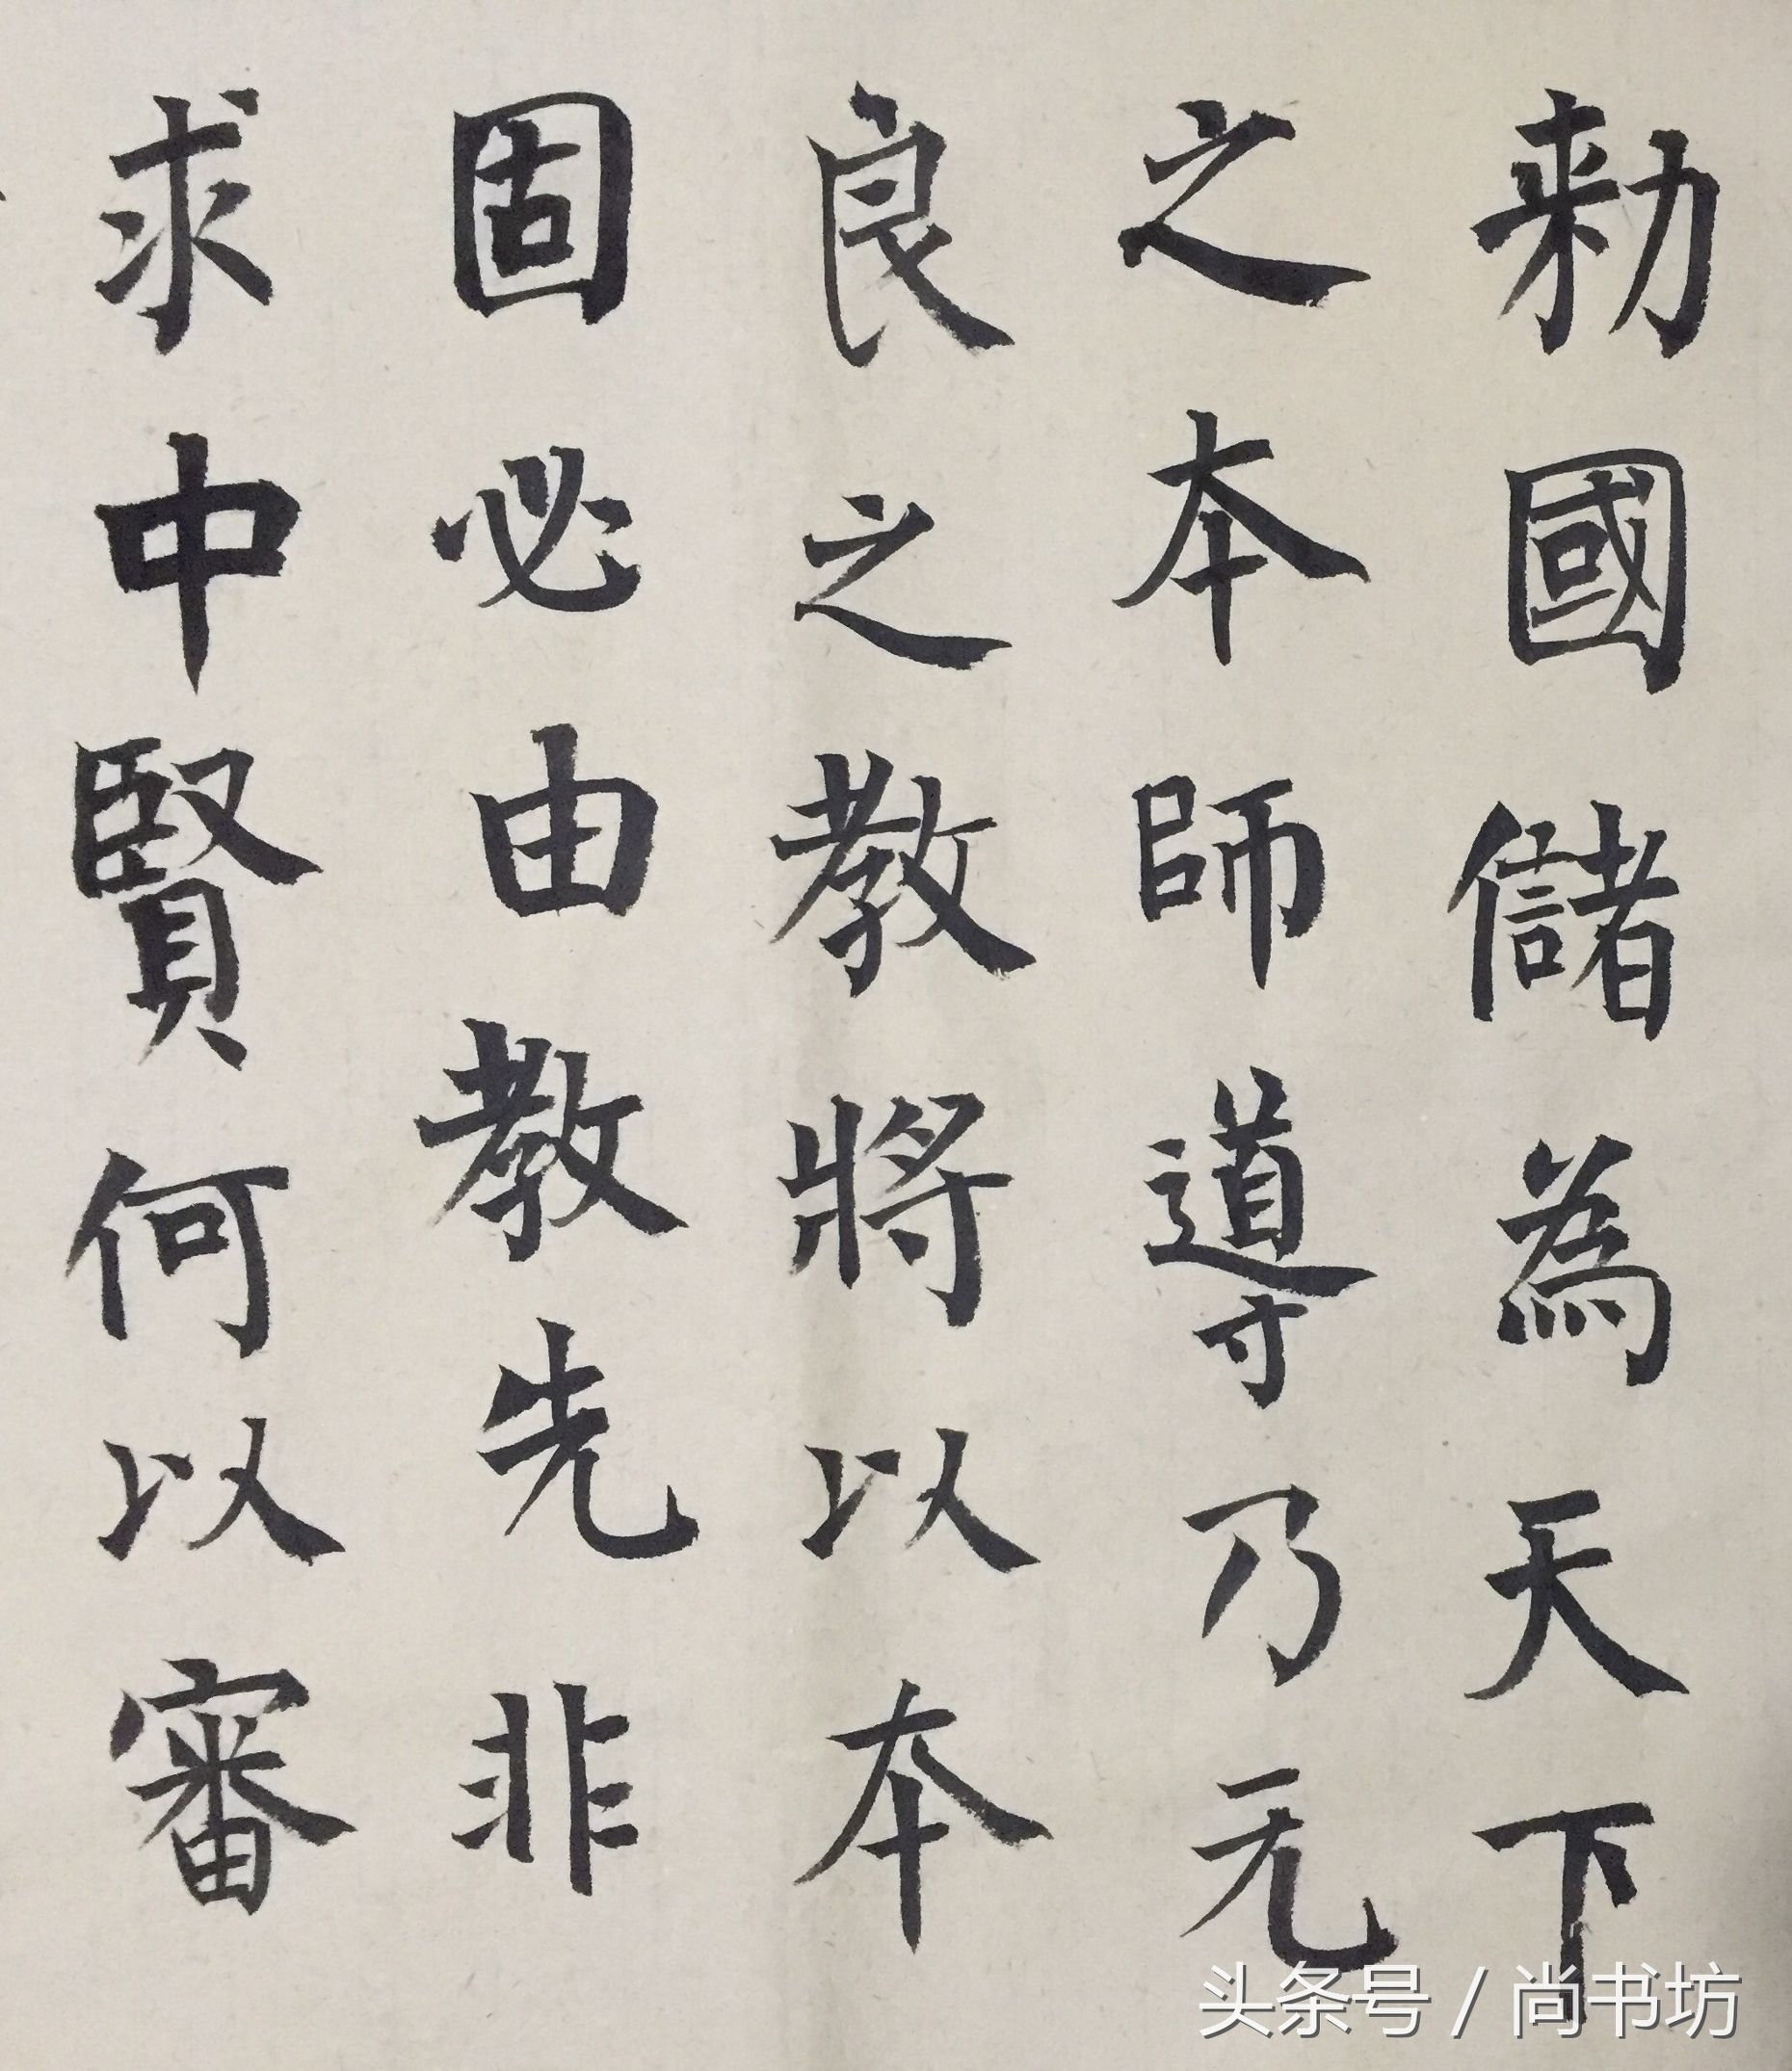 勑國儲為天下
之本師導乃元
良之教將以本
固必由教先非
求中賢何以審
头条号 / 尚书坊